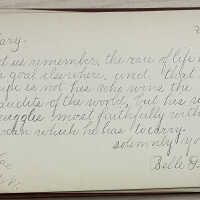 ary.
us remember, the race of life
goal elsewhere, and that
is not his who wins the
plaudits of the world, but his
struggles most faithfully with
which he has to carry.
solemnly yo
Belle